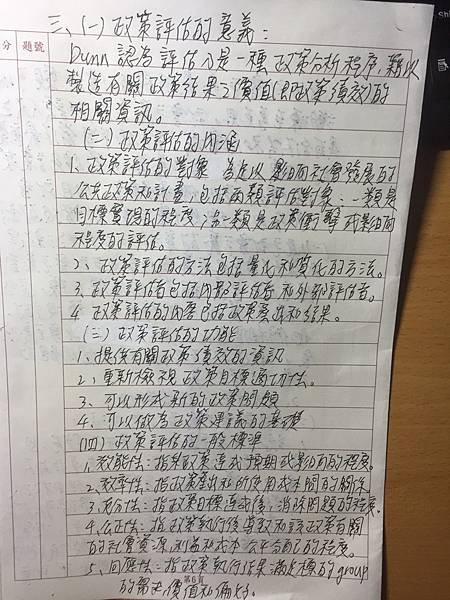 三、(一) 政策評估的意義：
分 題號
Dunn 認為評估乃是一種政策分析程序，藉以
製造有關政策結果之價值(即政策績效)的
相關資訊。
(二) 政策評估的內涵
1、政策評估的對象 為足以影响社會發展的
公共政策和計畫，包括兩類評估對象：一類是
目標實現的程度；另一類是政策衝擊或影响
程度的評估。
2、政策評估的方法包括量化和質化的方法。
3、政策評估者包括內部評估者和外部評估者。
4、政策評估的內容包括政策產出和結果。
(三) 政策評估的功能
1、提供有關政策績效的資訊
2、重新檢視政策目標適切性。
3、可以形成新的政策問題
4、可以做為政策建議的基礎
(四) 政策評估的一般標準
1、效能性：指某政策達成預期或影响的程度。
2、效率性：指政策產出和所使用成本間的關係
3、充分性：指政策目標達成後，消除問題的程度。
4、公正性：指政策執行後導致和該政策有關
的社會資源，利益和成本公平分配的程度。
5、回應性：指政策執行結果滿足標的group
的需求價值和偏好。
第6頁